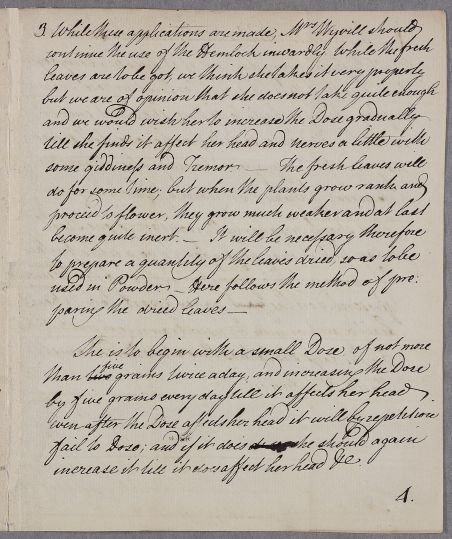 3. While these applications are made, Mrs Wyvill should
continue the use of the Hemlock inwardly. While the fresh
leaves are to be got, we think she takes it very properly
but we are of opinion that she does not take quite enough
and we would wish her to increase the Dose gradually
till she finds it affect her head and nerves a little with
some giddiness and Tremor. — The fresh leaves will
do for some time; but when the plants grow rank and
proceed to flower, they grow much weaker and at last
become quite inert. — It will be necessary therefore
to prepare a quantity of the leaves dried, so as to be
used in Powder. — Here follows the method of pre-
paring the dried leaves —
She is to begin with a small Dose, of not more
than five grains twice a day, and increasing the Dose
by five grains every day till it affects her head
even after the Dose affects her head it will by repetition
fail to Dose; and if it does she should again
increase it till it does affect her head &c.
4.